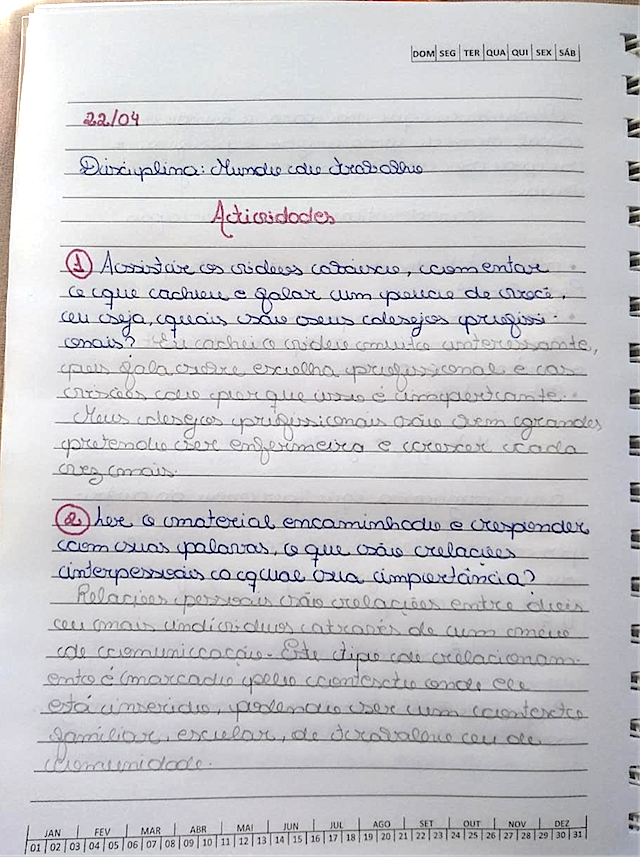 DOM SEG TER QUA QUI SEX SÁB
22/04
Disciplina: Mundo do trabalho
Atividades
1 Assistir os videos abaixo, comentar
o que achou e falar um pouco de você,
ou seja, quais são seus desejos profissi-
onais? Eu achei o video muito interessante,
pois fala sobre escolha profissional e as
visões do por que isso é importante.
Meus desejos profissionais são bem grandes
pretendo ser enfermeira e crescer cada
vez mais.
2 Ler o material encaminhado e responder
com suas palavas, o que são relações
interpessoais a qual sua importância?
Relações pessoais são relações entre dois
ou mais individuos através de um meio
de comunicação. Este tipo de relacionam-
ento é marcado pelo contexto onde ele
está inserido, podendo ser um contexto
familiar, escolar, de trabalho ou de
comunidade.
JAN FEV MAR ABR MAI JUN JUL AGO SET OUT NOV DEZ
01 02 03 04 05 06 07 08 09 10 11 12 13 14 15 16 17 18 19 20 21 22 23 24 25 26 27 28 29 30 31